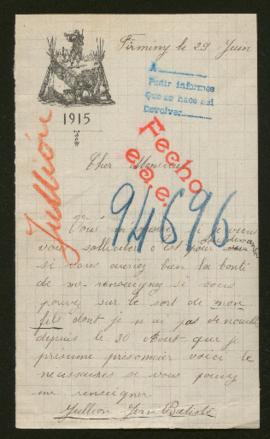 Firminy le 29 Juin
A
Pedir informes
Que se hace así
Devolver
1915
Fecho
e.s.e.
Jullion
94696
Cher Monsieur
Vous
vous solliciter c'est pour
si vous auriez bien la bonté
de me renseigner si vous
pouvez sur le sort de mon
fils dont je n'ai pas de nouvelle
depuis le 20 Aout que je
présume prisonnier voici le
nécessaires si vous pouvez
me renseigner
Jullion Jean Batiste